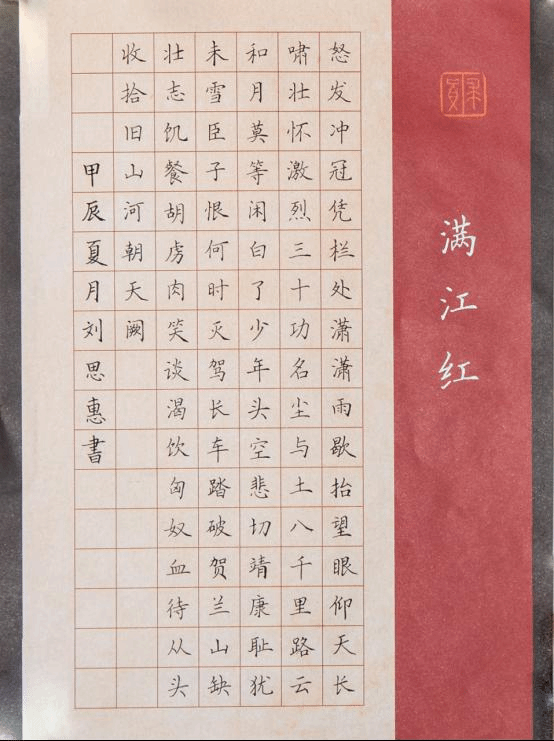 满江红
怒发冲冠凭栏处潇潇雨歇抬望眼仰天长
啸壮怀激烈三十功名尘与土八千里路云
和月莫等闲白了少年头空悲切靖康耻犹
未雪臣子恨何时灭驾长车踏破贺兰山缺
壮志饥餐胡虏肉笑谈渴饮匈奴血待从头
收拾旧山河朝天阙
甲辰夏月刘思惠書